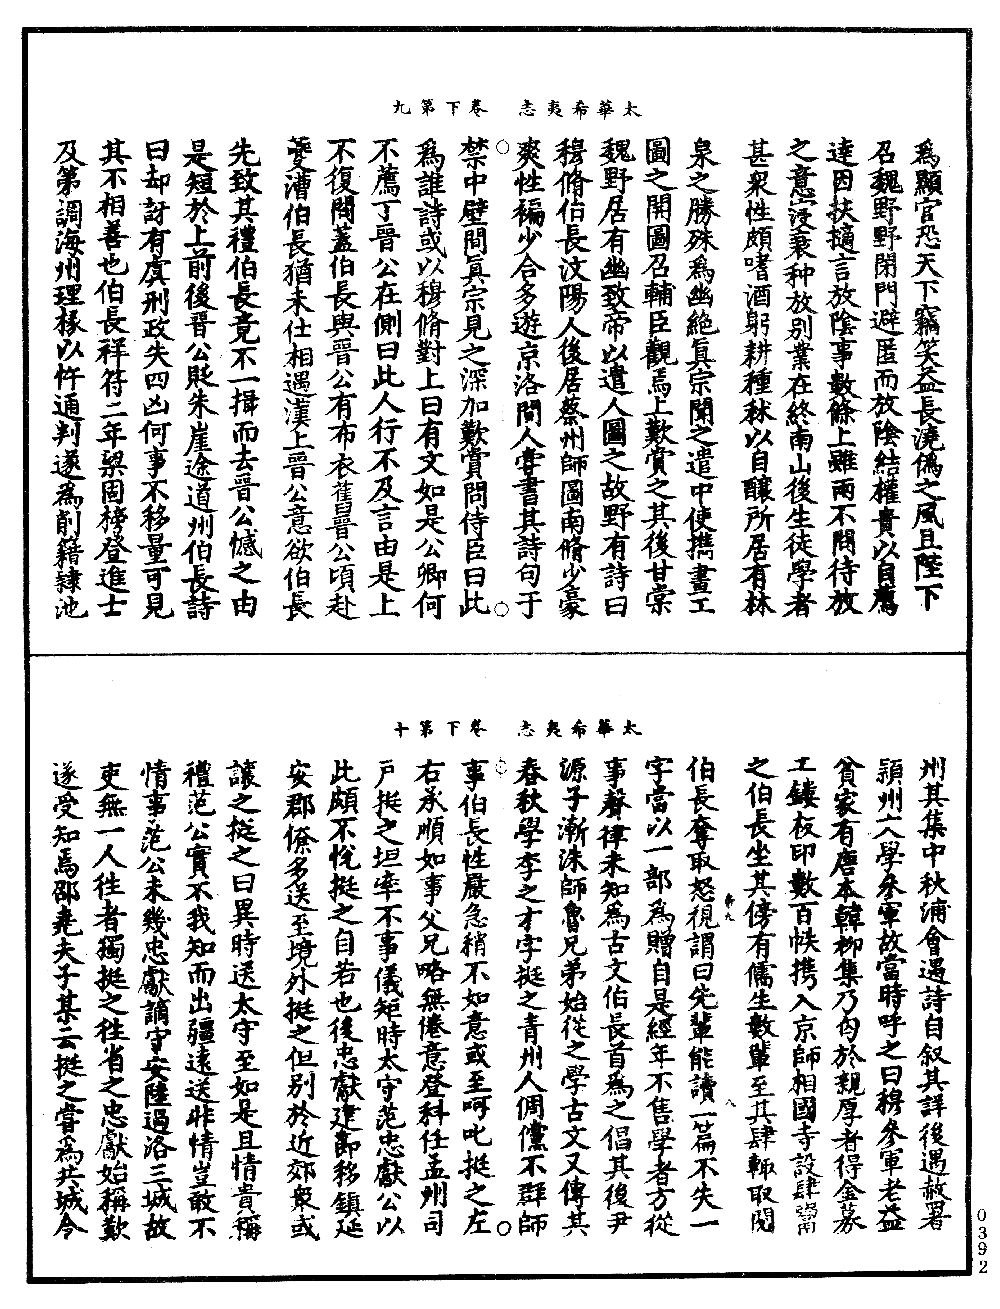 太華希夷志　卷下第九
爲顯官恐天下竊笑益長澆僞之風且陛下
召魏野野閉門避匿而放陰結權貴以自薦
達因扶擿言放陰事數餘上雖兩不問待放
之意寖衰种放別業在終南山後生徒學者
甚衆性頗嗜酒躬耕種秫以自釀所居有林
泉之勝殊爲幽絶眞宗聞之遣中使攜畫工
圖之開圖召輔臣觀焉上歎賞之其後甘棠
魏野居有幽致帝以遣人圖之故野有詩曰
穆脩伯長汶陽人後居蔡州師圖南脩少豪
爽性褊少合多遊京洛間人嘗書其詩句于
禁中壁間眞宗見之深加歎賞問侍臣曰此
爲誰詩或以穆脩對上曰有文如是公卿何
不薦丁晉公在側曰此人行不及言由是上
不復問蓋伯長與晉公有布衣舊晉公頃赴
夔漕伯長猶未仕相遇漢上晉公意欲伯長
先致其禮伯長竟不一揖而去晉公憾之由
是短於上前後晉公貶朱崖途道州伯長詩
曰却訝有虞刑政失四凶何事不移量可見
其不相善也伯長祥符二年梁固榜登進士
及第調海州理掾以忤通判遂爲削籍隸池
太華希夷志　卷下第十
州其集中秋浦會遇詩自叙其詳後遇赦署
潁州文學參軍故當時呼之曰穆參軍老益
貧家有唐本韓柳集乃丐於親厚者得金募
工鏤板印數百帙携入京師相國寺設肆鬻
之伯長坐其傍有儒生數輩至其肆輒取閱
伯長奪取怒視謂曰先輩能讀一篇不失一
字當以一部爲贈自是經年不售學者方從
事聲律未知爲古文伯長首爲之倡其後尹
源子漸洙師魯兄弟始從之學古文又傳其
春秋學李之才字挺之青州人倜儻不群師
事伯長性嚴急稍不如意或至呵叱挺之左
右承順如事父兄略無倦意登科任孟州司
戶挺之坦率不事儀矩時太守范忠獻公以
此頗不悅挺之自若也後忠獻建節移鎮延
安郡僚多送至境外挺之但別於近郊衆或
讓之挺之曰異時送太守至如是且情貴稱
禮范公實不我知而出疆遠送非情豈敢不
情事范公未幾忠獻謫守安陸過洛三城故
吏無一人往者獨挺之往省之忠獻始稱歎
遂受知焉邵堯夫子某云挺之嘗爲共城令
0392